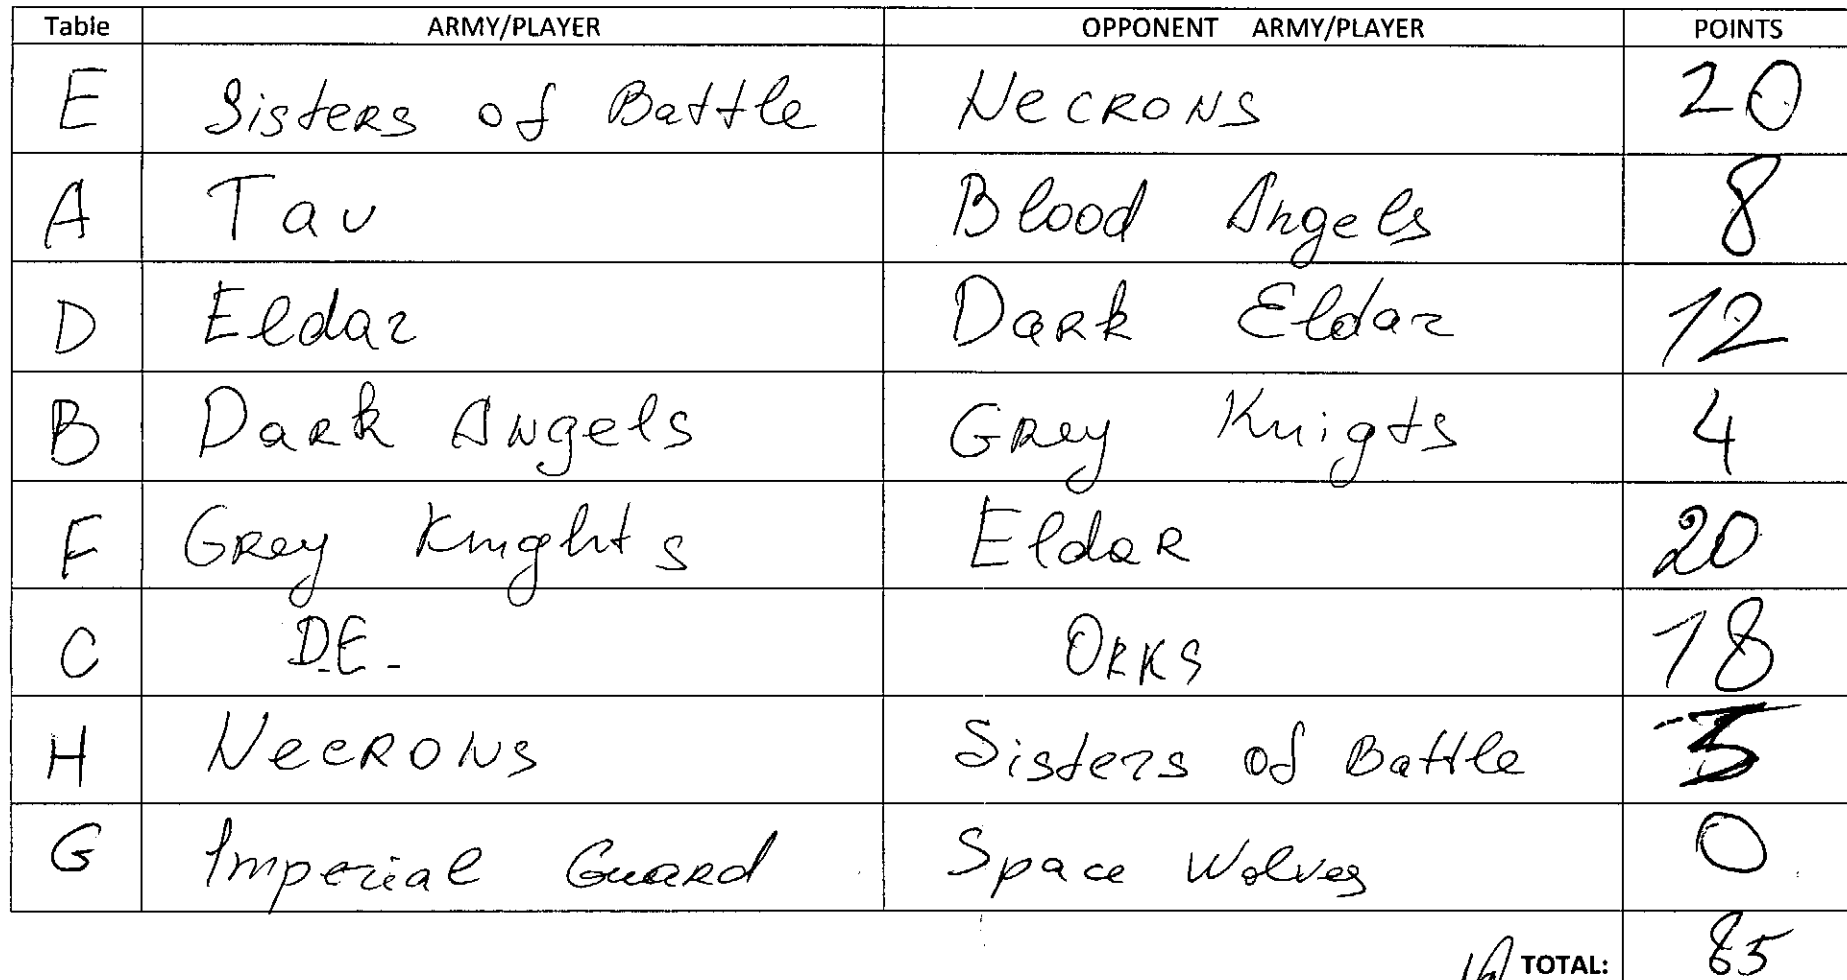 Table ARMY/PLAYER OPPONENT ARMY/PLAYER POINTS
E Sisters of Battle Necrons 20
A Tau Blood Angels 8
D Eldar Dark Eldar 12
B Dark Angels Grey Knigts 4
F Grey Knights Eldar 20
C D.E. Orks 18
H Necrons Sisters of Battle
G Imperial Guard Space Wolves 0
TOTAL: 85